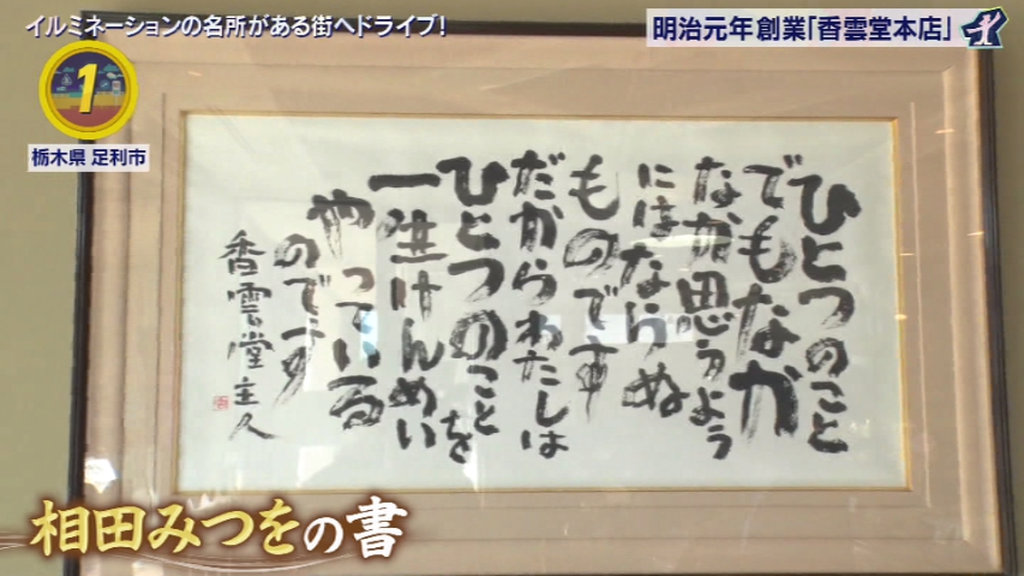 イルミネーションの名所がある街へドライブ!
明治元年創業「香雲堂本店」
1
栃木県 足利市
ひとつのこと
でもなかなか
なか思うよう
にはならぬ
ものです
だからわたしは
ひとつのことを
一生けんめい
やっている
のです
香雲堂主人
相田みつをの書